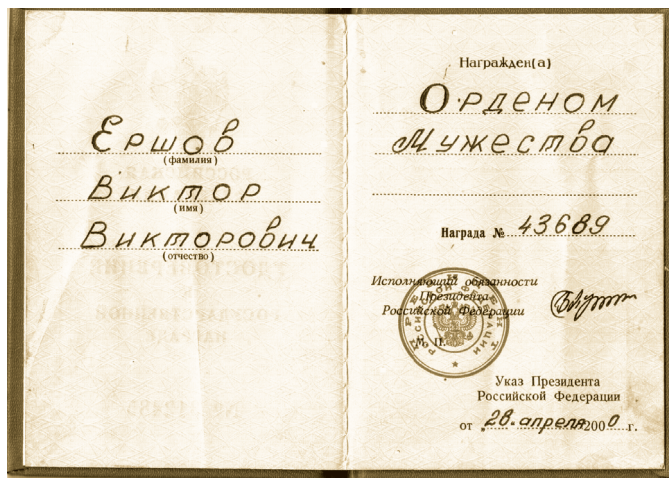 Ершов
(фамилия)
Виктор
(имя)
Викторович
(отчество)
Награжден(а)
Орденом
Мужества
Награда № 43689
Исполняющий обязанности
Президента
Российской Федерации
М. П.
Указ Президента
Российской Федерации
от „28. апреля 2000 г.